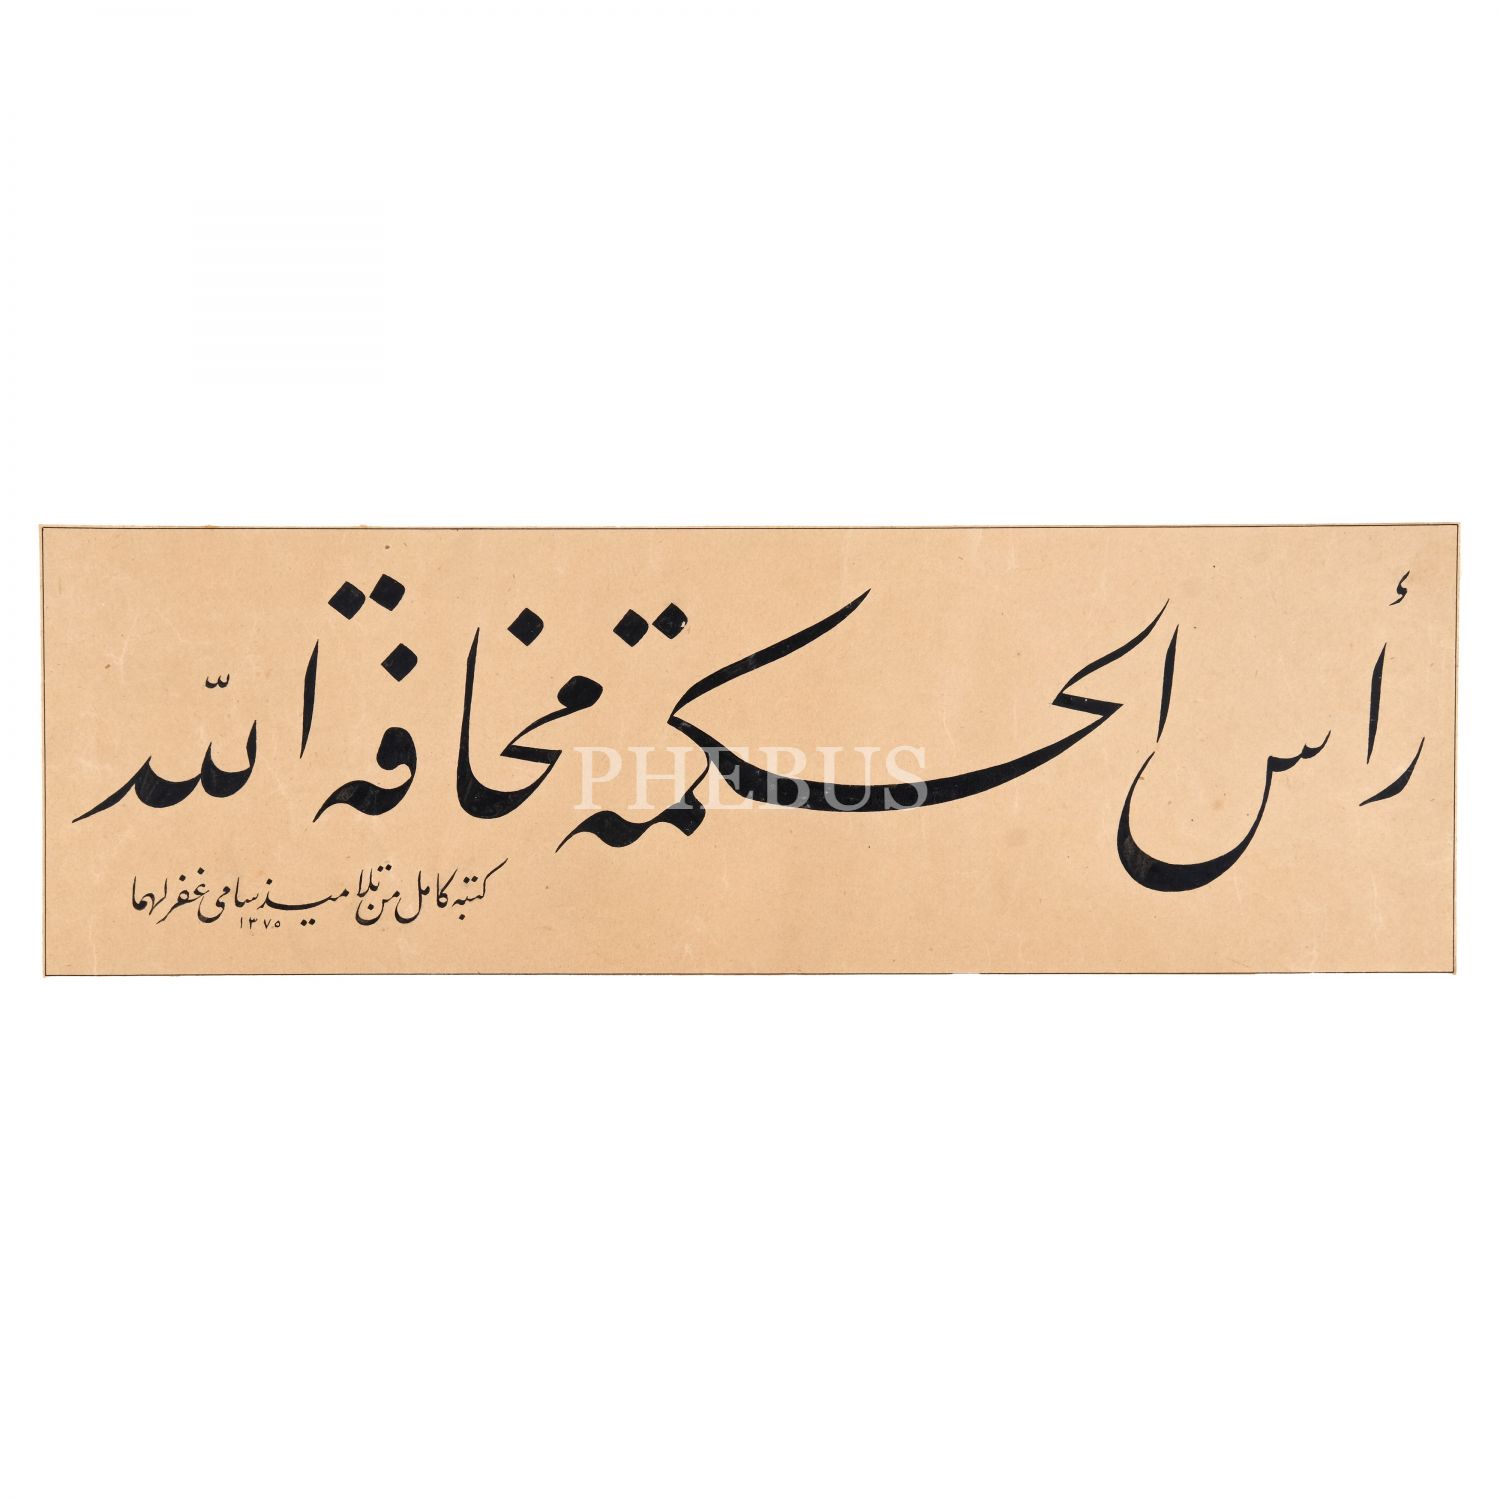 رأس الحكمة مخافة الله
كتبه كامل من تلاميذ سامى غفر لهما
١٣٧٥
PHEBUS